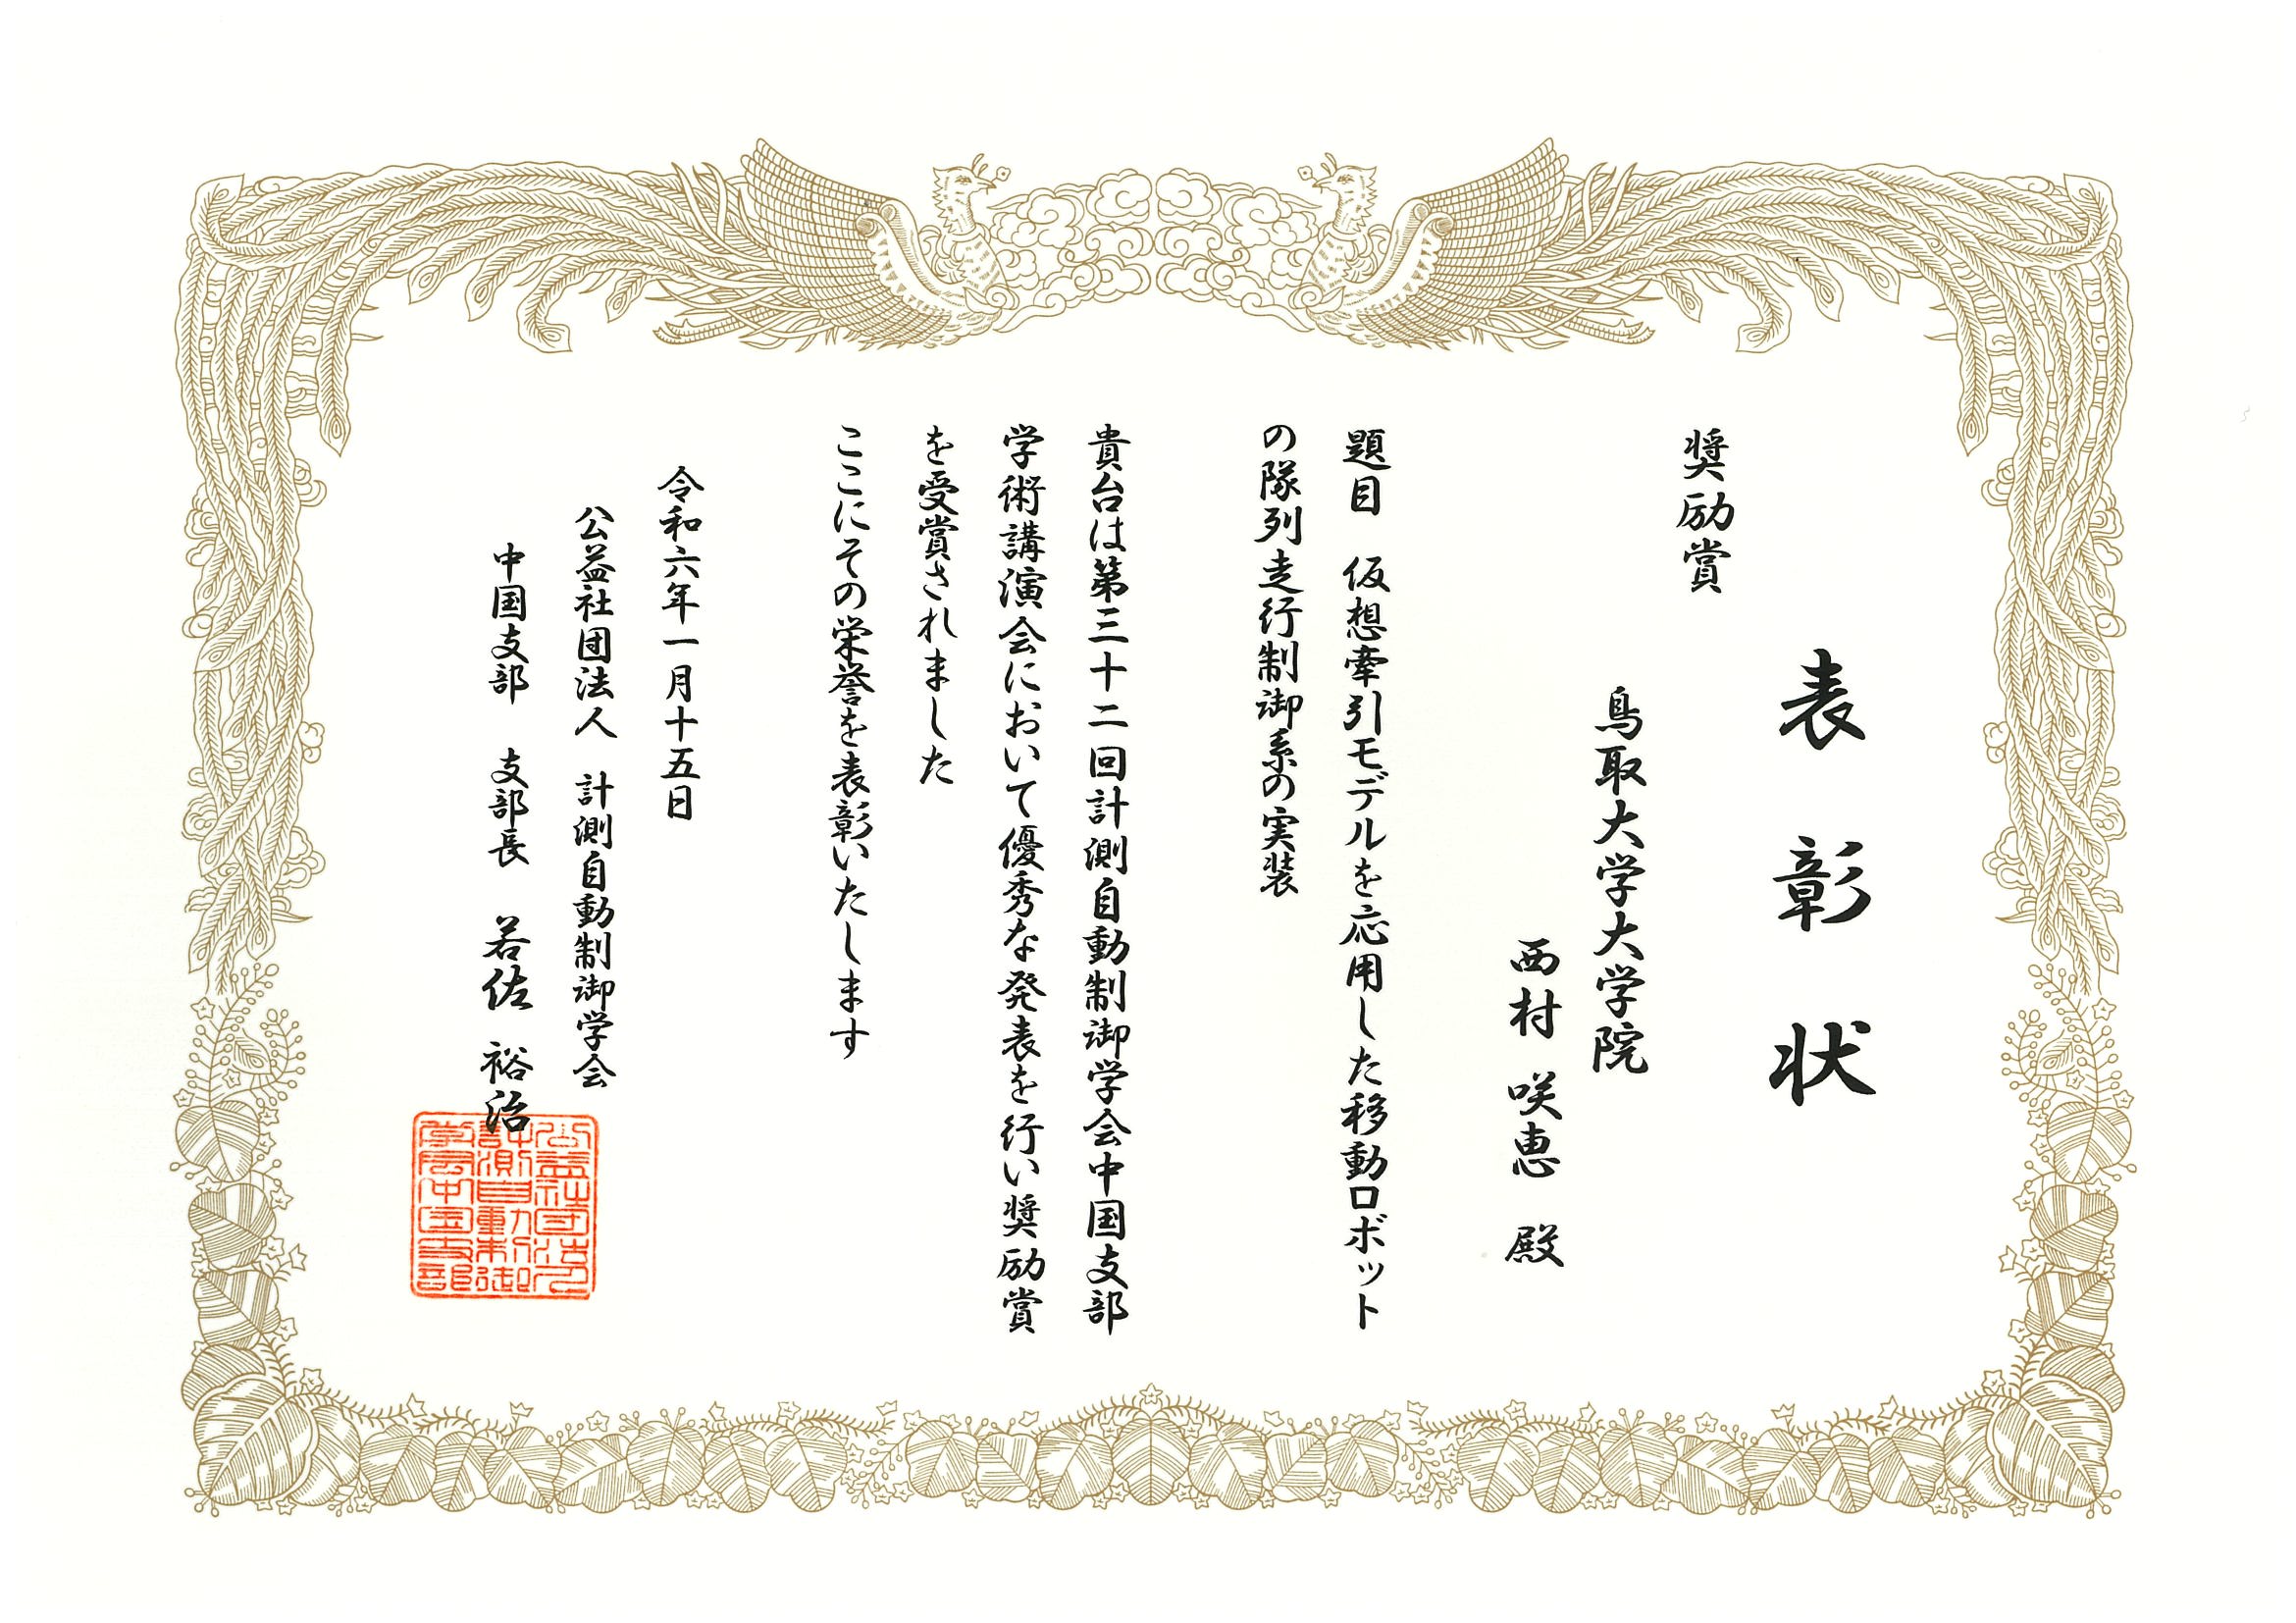 表彰状
奨励賞
鳥取大学大学院
西村 咲恵 殿
題目 仮想牽引モデルを応用した移動ロボット
の隊列走行制御系の実装
貴台は第三十二回計測自動制御学会中国支部
学術講演会において優秀な発表を行い奨励賞
を受賞されました
ここにその栄誉を表彰いたします
令和六年一月十五日
公益社団法人 計測自動制御学会
中国支部 支部長 若佐 裕治
公益社団法人
計測自動制御
学会中国支部